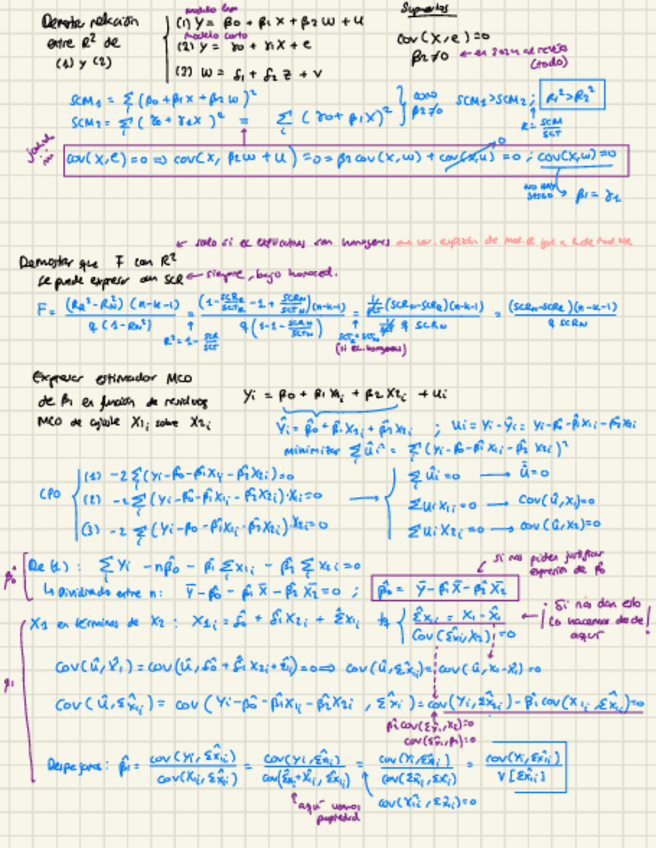 Demostrar relación entre R² de (1) y (2)
modelo largo
(1) Y = β0 + β1 X + β2 W + u
modelo corto
(2) Y = γ0 + γ1 X + e
(3) W = δ1 + δ2 Z + v
Supuestos
Cov(X,e) = 0
β2 ≠ 0
(todo)
SCM1 = Σ(β0+β1X+β2W)²
SCM2 = Σ(γ0+γ1X)² = Σ(γ0+β1X)²
β2≠0
SCM1 > SCM2 ; R1² > R2²
R = SCM/SCT
cov(X,e)=0 ⇒ cov(X, β2W+u) = 0 = β2 cov(X,W) + cov(X,u) = 0 ; cov(X,W)=0
0
NO HAY SESGO → β1 = γ1
Demostrar que F con R²
se puede expresar con SCR ← siempre, bajo homoced.
F = (RR²-RN²)(n-k-1) / q(1-RN²)
= (1-SCRR/SCTR -1 + SCRN/SCTN)(n-k-1) / q(1-1-SCRN/SCTN)
= (SCRN-SCRR)(n-k-1) / q SCRN = (SCRN-SCRR)(n-k-1) / q SCRN
R²=1-SCR/SCT
Expresar estimador MCO
de β1 en función de residuos
MCO de ajuste X1i sobre X2i
Yi = β0 + β1 X1i + β2 X2i + ui
Ŷi = β̂0 + β̂1 X1i + β̂2 X2i ; ûi = Yi - Ŷi = Yi-β̂0-β̂1X1i-β̂2X2i
minimizar Σûi² = Σ(Yi-β̂0-β̂1X1i-β̂2X2i)²
CPO
(1) -2Σ(Yi-β̂0-β̂1X1i-β̂2X2i)=0
(2) -2Σ(Yi-β̂0-β̂1X1i-β̂2X2i)·X1i=0
(3) -2Σ(Yi-β̂0-β̂1X1i-β̂2X2i)·X2i=0
Σûi=0 → û=0
ΣuiX1i=0 → cov(û,X1)=0
ΣuiX2i=0 → cov(û,X2)=0
si nos piden justificar
expresión de β̂0
β̂0
De (1): ΣYi - nβ̂0 - β̂1ΣX1i - β̂2ΣX2i=0
↳ Dividiendo entre n: Ȳ-β̂0-β̂1X̄-β̂2X̄2=0 ; β̂0 = Ȳ-β̂1X̄-β̂2X̄2
X1 en términos de X2: X1i = δ̂0 + δ̂1X2i + ε̂x1i
ε̂x1i = X1-X̂1
Cov(ε̂x1i,X2)=0
Si nos dan esto
lo hacemos desde
aquí
cov(û,X1)=cov(û,δ̂0+δ̂1X2i+ε̂i)=0 ⇒ cov(û,ε̂x1i)=cov(û,X1-X̂1)=0
cov(û,ε̂x1i) = cov(Yi-β̂0-β̂1X1i-β̂2X2i, ε̂x1i) = cov(Yi,ε̂x1i)-β̂1cov(X1i,ε̂x1i)=0
β̂2cov(ε̂x1i,X2)=0
Despejamos: β̂1 = cov(Yi,ε̂x1i)/cov(X1i,ε̂x1i) = cov(Yi,ε̂x1i)/cov(ε̂x1i+X̂1i,ε̂x1i) = cov(Yi,ε̂x1i)/cov(ε̂x1i,ε̂x1i) = cov(Yi,ε̂x1i)/V[ε̂x1i]
aquí usamos
propiedad
cov(X̂1i,ε̂x1i)=0